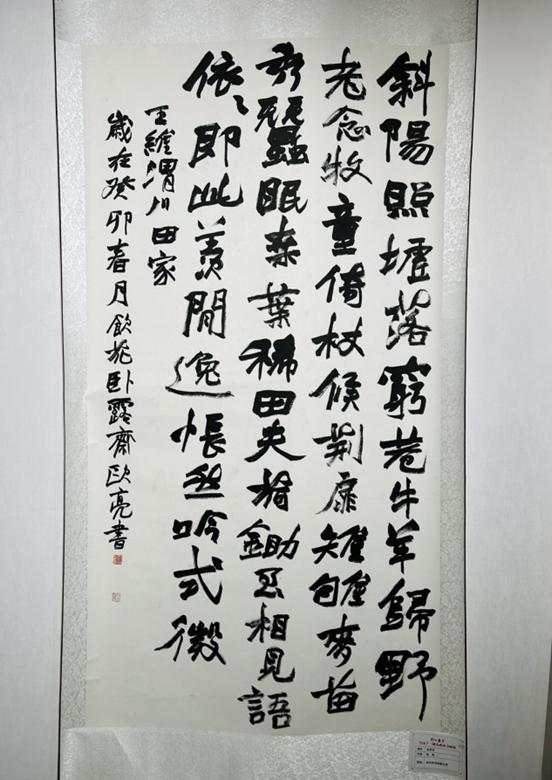 斜陽照墟落窮巷牛羊歸野
老念牧童倚杖候荆扉雉雊麥苗
秀蠶眠桑葉稀田夫鋤至相見語
依〻即此羡閒逸悵然吟式微
王維渭川田家
歲在癸卯春月飲於卧露齋歐亮書